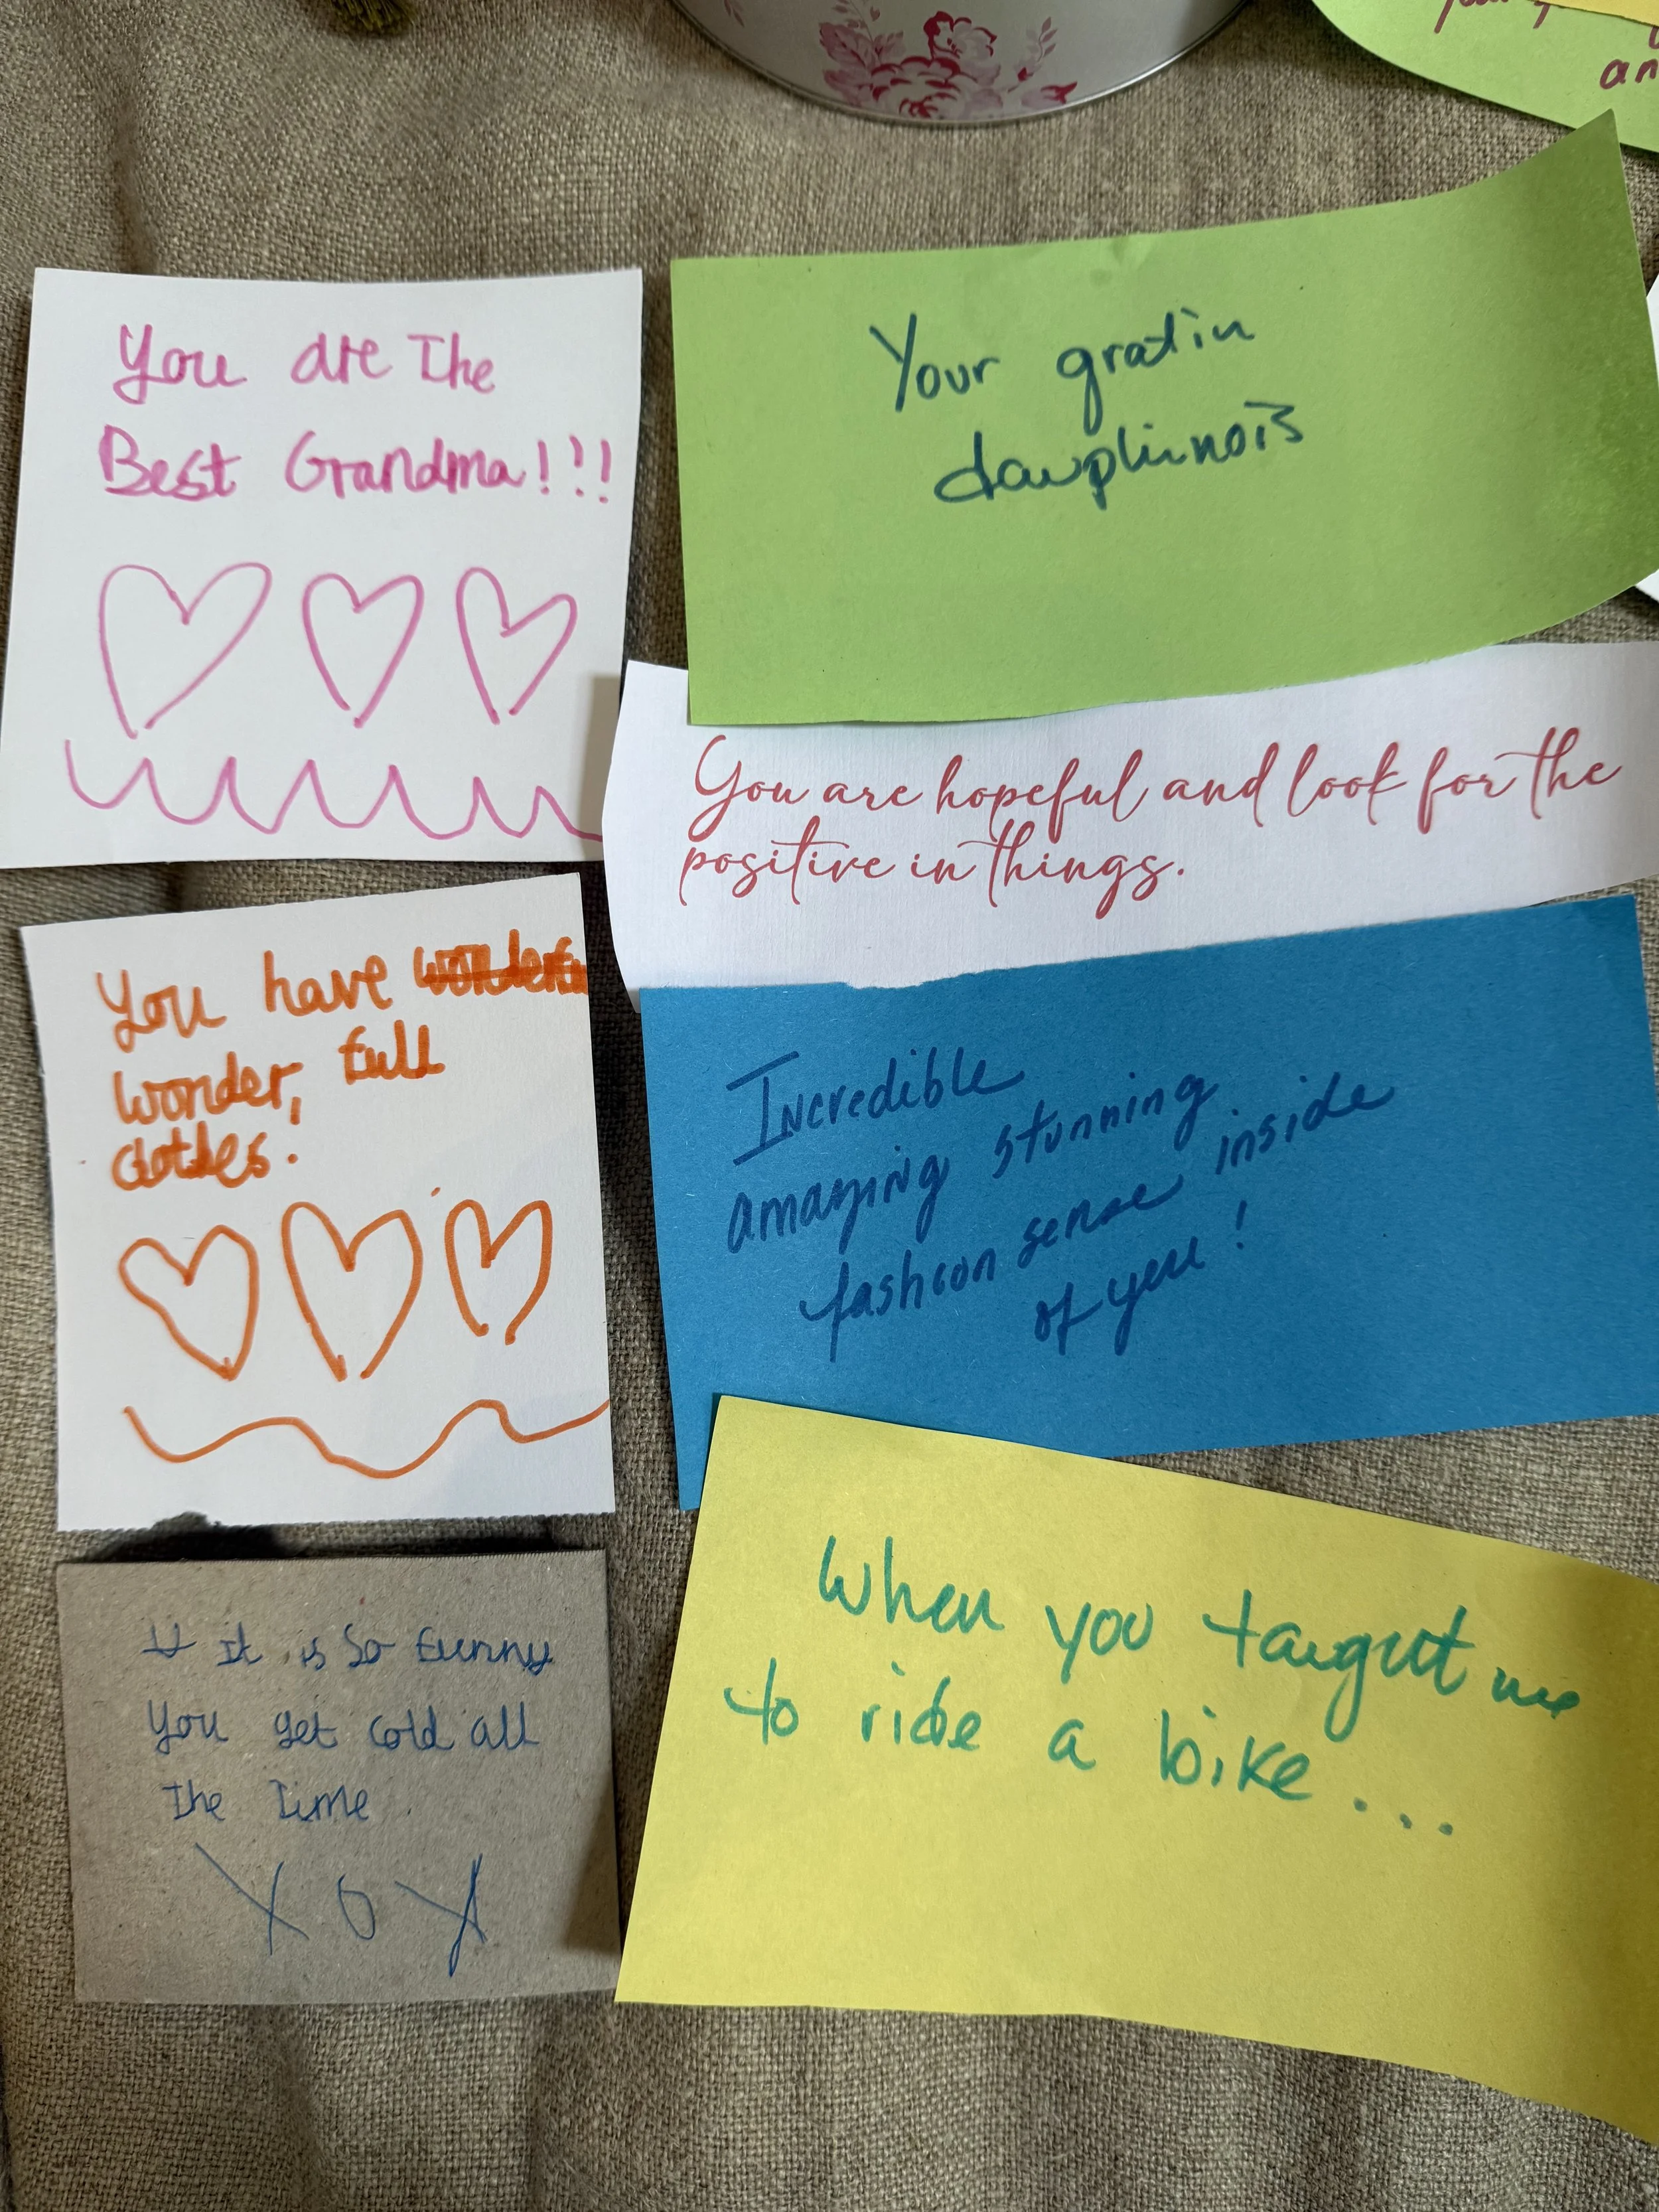 You are The
Best Grandma!!!
Your gratin
dauphinois
You are hopeful and look for the
positive in things.
You have
wonder, full
clothes!
Incredible
amazing stunning
fashion sense inside
of you!
It is So funny
You get cold all
The Time
XOX
When you taught me
to ride a bike...
an